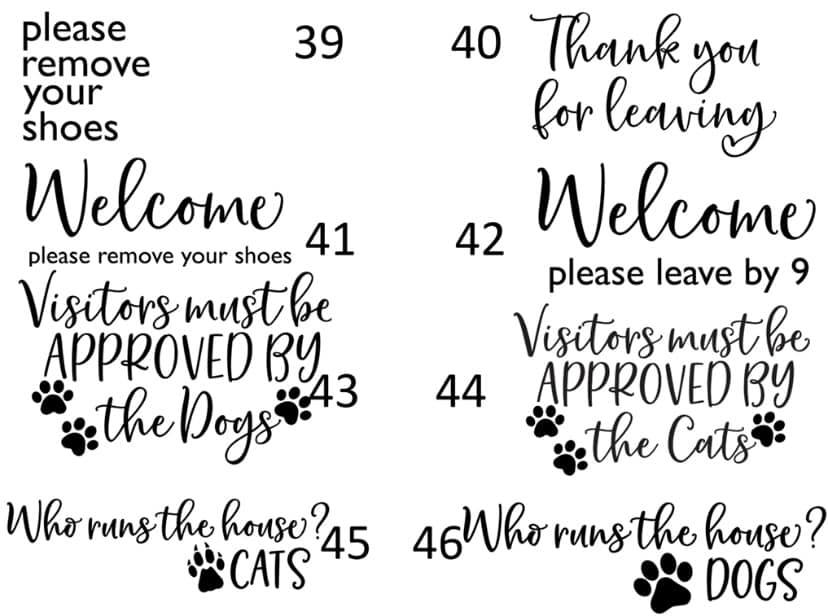 please
remove
your
shoes
39
40
Thank you
for leaving
Welcome
please remove your shoes
41
42
Welcome
please leave by 9
Visitors must be
APPROVED BY
the Dogs
43
44
Visitors must be
APPROVED BY
the Cats
Who runs the house?
CATS
45
46
Who runs the house?
DOGS